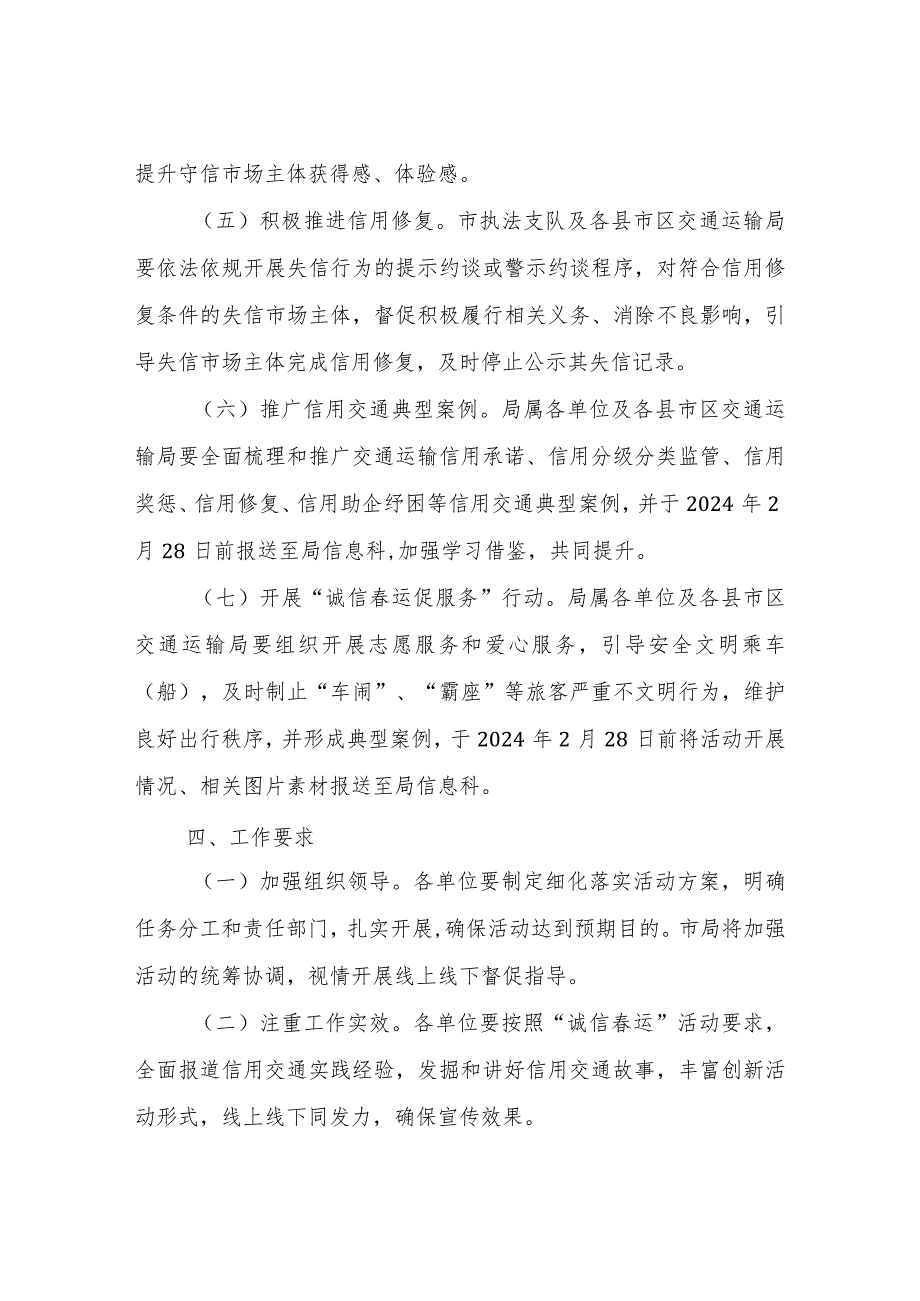 提升守信市场主体获得感、体验感。
（五）积极推进信用修复。市执法支队及各县市区交通运输局
要依法依规开展失信行为的提示约谈或警示约谈程序，对符合信用修
复条件的失信市场主体，督促积极履行相关义务、消除不良影响，引
导失信市场主体完成信用修复，及时停止公示其失信记录。
（六）推广信用交通典型案例。局属各单位及各县市区交通运
输局要全面梳理和推广交通运输信用承诺、信用分级分类监管、信用
奖惩、信用修复、信用助企纾困等信用交通典型案例，并于 2024 年 2
月 28 日前报送至局信息科,加强学习借鉴，共同提升。
（七）开展“诚信春运促服务”行动。局属各单位及各县市区
交通运输局要组织开展志愿服务和爱心服务，引导安全文明乘车
（船），及时制止“车闹”、“霸座”等旅客严重不文明行为，维护
良好出行秩序，并形成典型案例，于 2024 年 2 月 28 日前将活动开展
情况、相关图片素材报送至局信息科。
四、工作要求
（一）加强组织领导。各单位要制定细化落实活动方案，明确
任务分工和责任部门，扎实开展,确保活动达到预期目的。市局将加强
活动的统筹协调，视情开展线上线下督促指导。
（二）注重工作实效。各单位要按照“诚信春运”活动要求，
全面报道信用交通实践经验，发掘和讲好信用交通故事，丰富创新活
动形式，线上线下同发力，确保宣传效果。